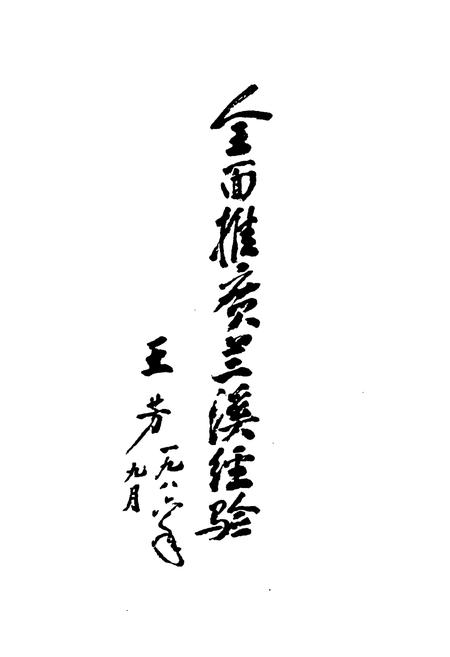 全面推广兰溪经验
王芳
一九八六年
九月